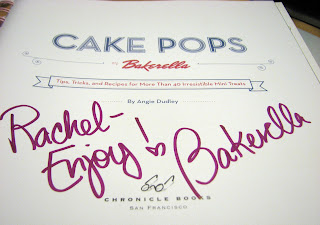 CAKE POPS
by Bakerella
Tips, Tricks, and Recipes for More Than 40 Irresistible Mini Treats
By Angie Dudley
Rachel-
Enjoy!
Bakerella
CHRONICLE BOOKS
SAN FRANCISCO